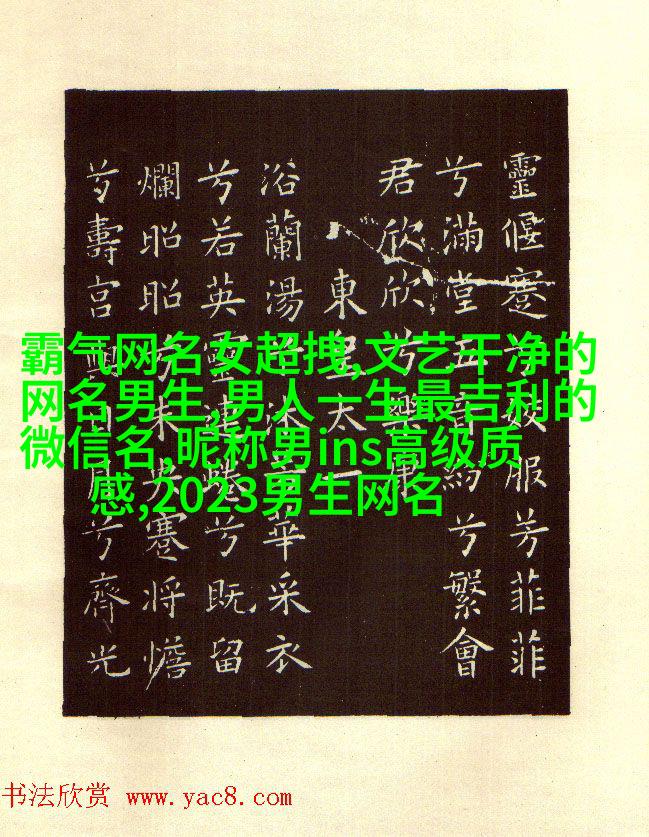 霸气网名女超拽,文艺干净的
网名男生,男人一生最吉利的
微信名,昵称男ins高级质
感,2023男生网名
靈偃蹇兮姣服芳菲菲
兮滿堂五音紛兮繁會
君欣欣兮樂康
東皇太一
浴蘭湯兮沐芳華采衣
兮若英靈連蜷兮既留
爛昭昭兮未央蹇將憺
兮壽宮與日月兮齊光
书法欣赏 www.yac8.com